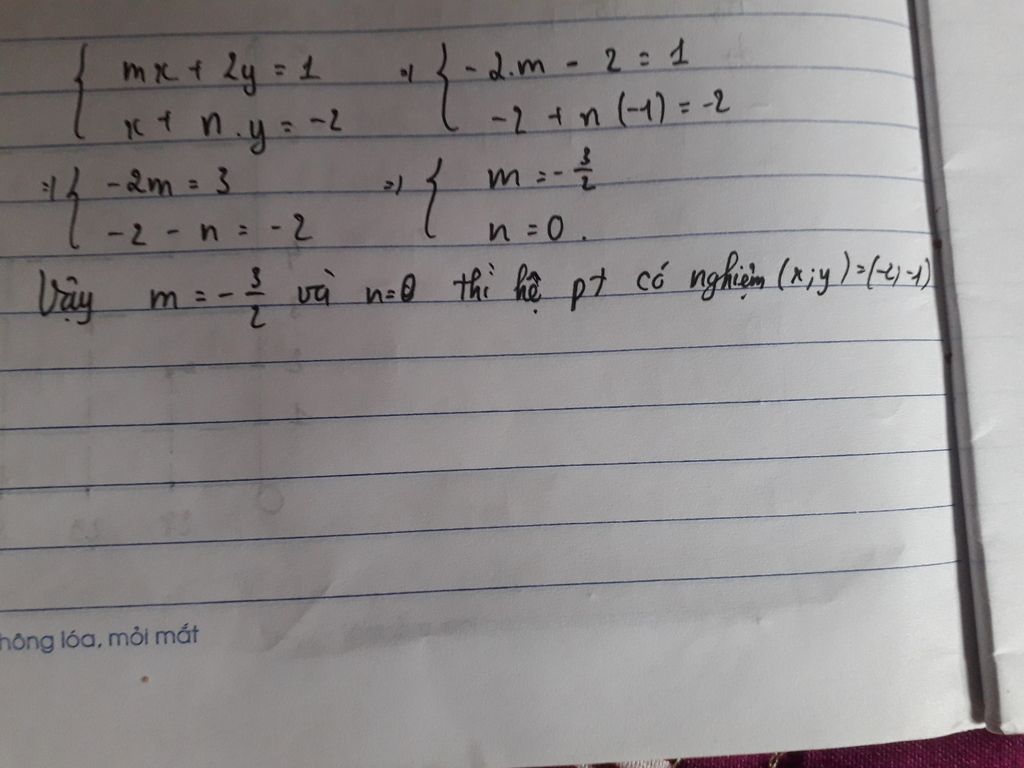 { mx + 2y = 1 => { -2.m - 2 = 1
x + n.y = -2 -2 + n(-1) = -2
=> { -2m = 3 => { m = -3/2
-2 - n = -2 n = 0.
Vậy m = -3/2 và n=0 thì hệ pt có nghiệm (x;y)=(-2;-1)
hông lóa, mỏi mắt